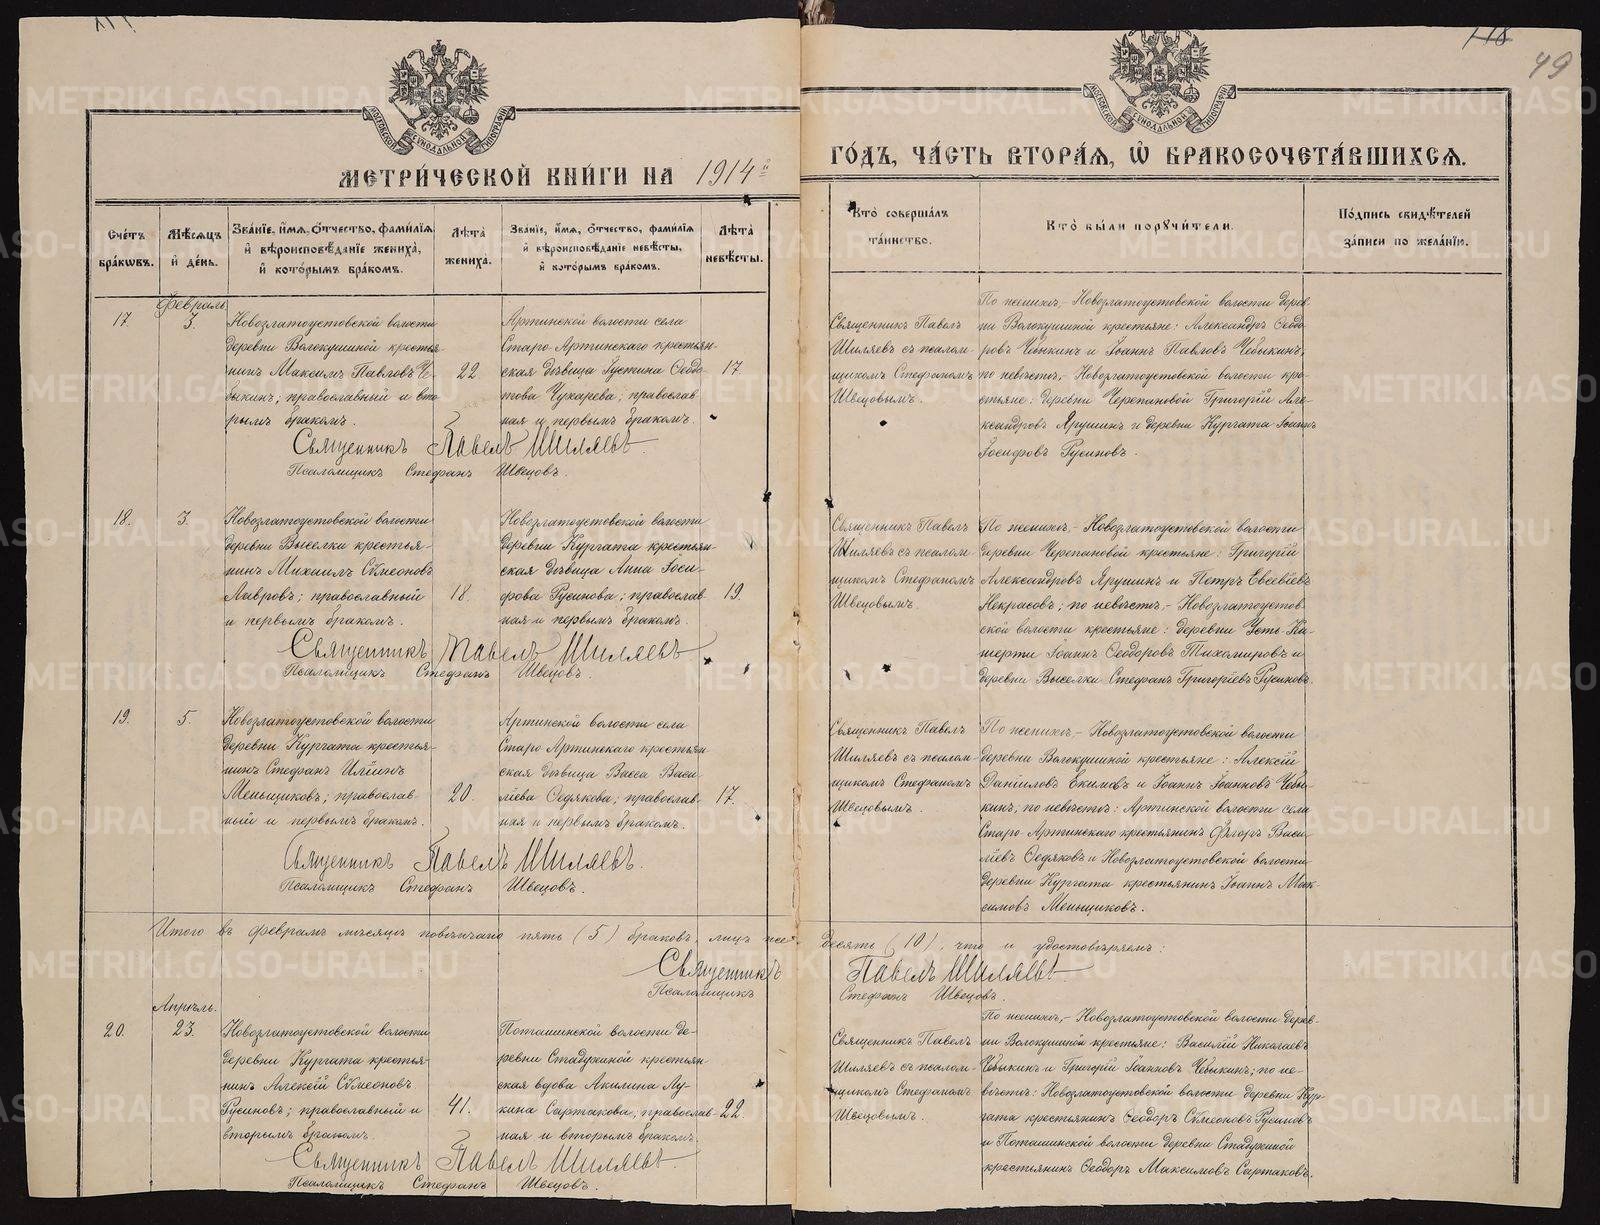 118
49
МОСКОВСКОЙ СѴНОДАЛЬНОЙ ТИПОГРАФІИ
МОСКОВСКОЙ СѴНОДАЛЬНОЙ ТИПОГРАФІИ
МЕТРИ́ЧЕСКОЙ КНИ́ГИ НА 1914й ГО́ДЪ, ЧА́СТЬ ВТОРА́Я, Ѡ БРАКОСОЧЕТА́ВШИХСЯ.
Сче́тъ бра́кѡвъ.
Мѣ́сяцъ и де́нь.
Зва́ніе, и́мя, о́тчество, фами́лія
и вѣроисповѣ́даніе жениха̀,
и кото́рымъ бра́комъ.
Лѣ́та жениха.
Зва́ніе, и́мя, о́тчество, фами́лія
и вѣроисповѣ́даніе невѣ́сты,
и кото́рымъ бра́комъ.
Лѣ́та невѣ́сты.
Кто̀ соверша́лъ та́инство.
Кто̀ бы́ли поручи́тели.
По́дпись свидѣ́телей
за́писи по жела́нію.
Февраль
17.
3.
Новозлатоустовской волости
деревни Волокушиной крестья-
нинъ Максимъ Павловъ Че-
быкинъ; православный и вто
рымъ бракомъ.
22
Артинской волости села
Старо Артинскаго крестьян-
ская дѣвица Іустина Ѳедо-
това Чухарева; православ
ная и первымъ бракомъ.
17
Священникъ Павелъ
Шиляевъ съ псалом-
щикомъ Стефаномъ
Швецовымъ.
По женихѣ,- Новозлатоустовской волости дерев-
ни Волокушиной крестьяне: Александръ Ѳедо
ровъ Чебыкинъ и Іоаннъ Павловъ Чебыкинъ,
по невѣстѣ,- Новозлатоустовской волости кре-
стьяне: деревни Черепановой Григорій Але-
ксандровъ Ярушинъ и деревни Кургата Іоаннъ
Іосифовъ Русиновъ.
Священникъ Павелъ Шиляевъ.
Псаломщикъ Стефанъ Швецовъ.
18.
3.
Новозлатоустовской волости
деревни Выселки крестья-
нинъ Михаилъ Сѵмеоновъ
Лавровъ; православный
и первымъ бракомъ.
18.
Новозлатоустовской волости
деревни Кургата крестьян-
ская дѣвица Анна Іоси-
фова Русинова; православ-
ная и первымъ бракомъ.
19.
Священникъ Павелъ
Шиляевъ съ псалом-
щикомъ Стефаномъ
Швецовымъ.
По женихѣ,- Новозлатоустовской волости
деревни Черепановой крестьяне: Григорій
Александровъ Ярушинъ и Петръ Евсевіевъ
Некрасовъ; по невѣстѣ,- Новозлатоустов
ской волости крестьяне: деревни Усть-Ки-
шерти Іоаннъ Ѳеодоровъ Тихомировъ и
деревни Выселки Стефанъ Григоріевъ Русиновъ.
Священникъ Павелъ Шиляевъ
Псаломщикъ Стефанъ Швецовъ.
19.
5.
Новозлатоустовской волости
деревни Кургата крестья-
нинъ Стефанъ Иліинъ
Меньщиковъ; православ
ный и первымъ бракомъ.
20.
Артинской волости села
Старо Артинскаго крестьян
ская дѣвица Васса Васи
ліева Седякова; православ-
ная и первымъ бракомъ.
17.
Священникъ Павелъ
Шиляевъ съ псалом-
щикомъ Стефаномъ
Швецовымъ.
По женихѣ,- Новозлатоустовской волости
деревни Волокушиной крестьяне: Алексій
Даніиловъ Екимовъ и Іоаннъ Іоанновъ Чебы-
кинъ; по невѣстѣ: Артинской волости села
Старо-Артинскаго крестьянинъ Ѳеоръ Васи
ліевъ Седяковъ и Новозлатоустовской волости
деревни Кургата крестьянинъ Іоаннъ Мак-
симовъ Меньщиковъ.
Священникъ Павелъ Шиляевъ.
Псаломщикъ Стефанъ Швецовъ.
Итого въ февралѣ мѣсяцѣ повѣнчано пять (5) браковъ, лицъ же десять (10), что и удостовѣряемъ:
Священникъ Павелъ Шиляевъ
Псаломщикъ Стефанъ Швецовъ.
Апрѣль.
20.
23.
Новозлатоустовской волости
деревни Кургата крестья-
нинъ Алексій Сѵмеоновъ
Русиновъ; православный и
вторымъ бракомъ.
41.
Поташинской волости де-
ревни Стадухиной крестьян
ская вдова Акилина Лу-
кина Сартакова; православ-
ная и вторымъ бракомъ.
22.
Священникъ Павелъ
Шиляевъ съ псалом-
щикомъ Стефаномъ
Швецовымъ.
По женихѣ,- Новозлатоустовской волости дерев-
ни Волокушиной крестьяне: Василій Николаевъ
Чебыкинъ и Григорій Іоанновъ Чебыкинъ; по не-
вѣстѣ: Новозлатоустовской волости деревни Кур-
гата крестьянинъ Ѳеодоръ Сѵмеоновъ Русиновъ
и Поташинской волости деревни Стадухиной
крестьянинъ Ѳеодоръ Максимовъ Сартаковъ.
Священникъ Павелъ Шиляевъ.
Псаломщикъ Стефанъ Швецовъ.
METRIKI.GASO-URAL.RU